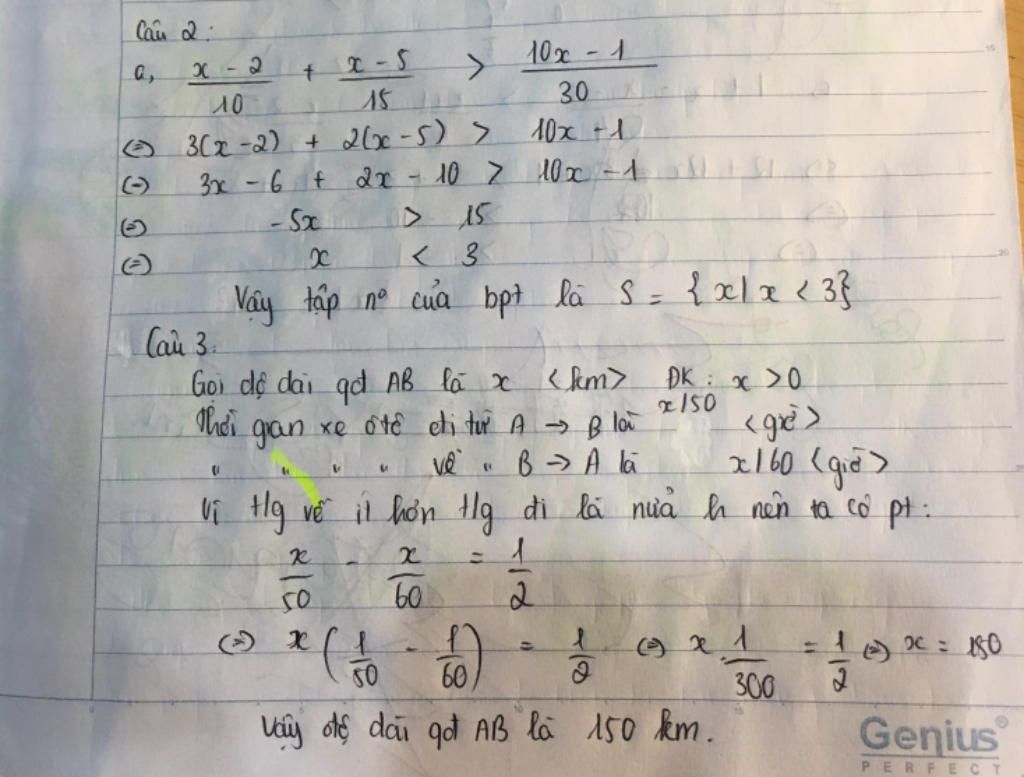 Câu 2:
a, \frac{x - 2}{10} + \frac{x - 5}{15} > \frac{10x - 1}{30}
(=) 3(x-2) + 2(x-5) > 10x - 1
(=) 3x - 6 + 2x - 10 > 10x - 1
(=) -5x > 15
(=) x < 3
Vậy tập nº của bpt là S = {x | x < 3}
Câu 3:
Gọi độ dài qđ AB là x <km> ĐK: x > 0
Thời gian xe ôtô đi từ A → B là x/50 <giờ>
" " " " về " B → A là x/60 <giờ>
Vì t/g về ít hơn t/g đi là nửa h nên ta có pt:
\frac{x}{50} - \frac{x}{60} = \frac{1}{2}
(=) x(\frac{1}{50} - \frac{1}{60}) = \frac{1}{2} (=) x.\frac{1}{300} = \frac{1}{2} (=) x = 150
Vậy độ dài qđ AB là 150 km.
Genius®
PERFECT